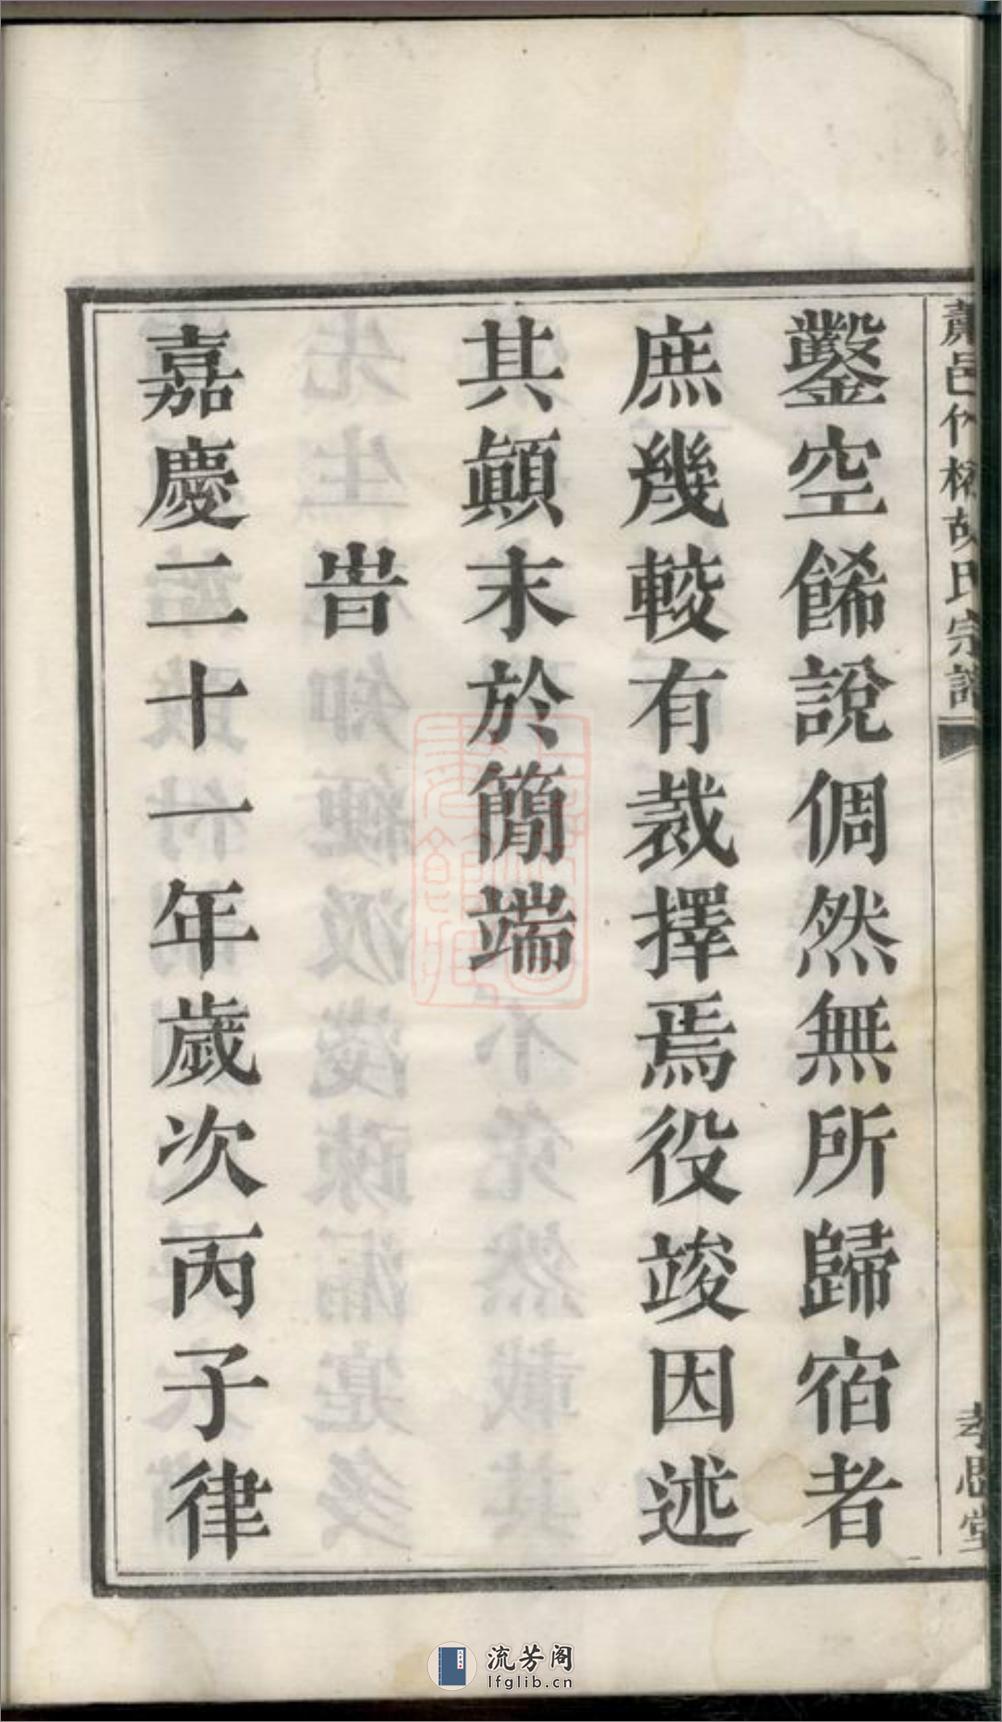 蕭邑竹橋胡氏宗譜
孝思堂
鑿空餙說倜然無所歸宿者
庶幾較有裁擇焉役竣因述
其顛末於簡端
旹
嘉慶二十一年歲次丙子律
流芳阁
lfglib.cn